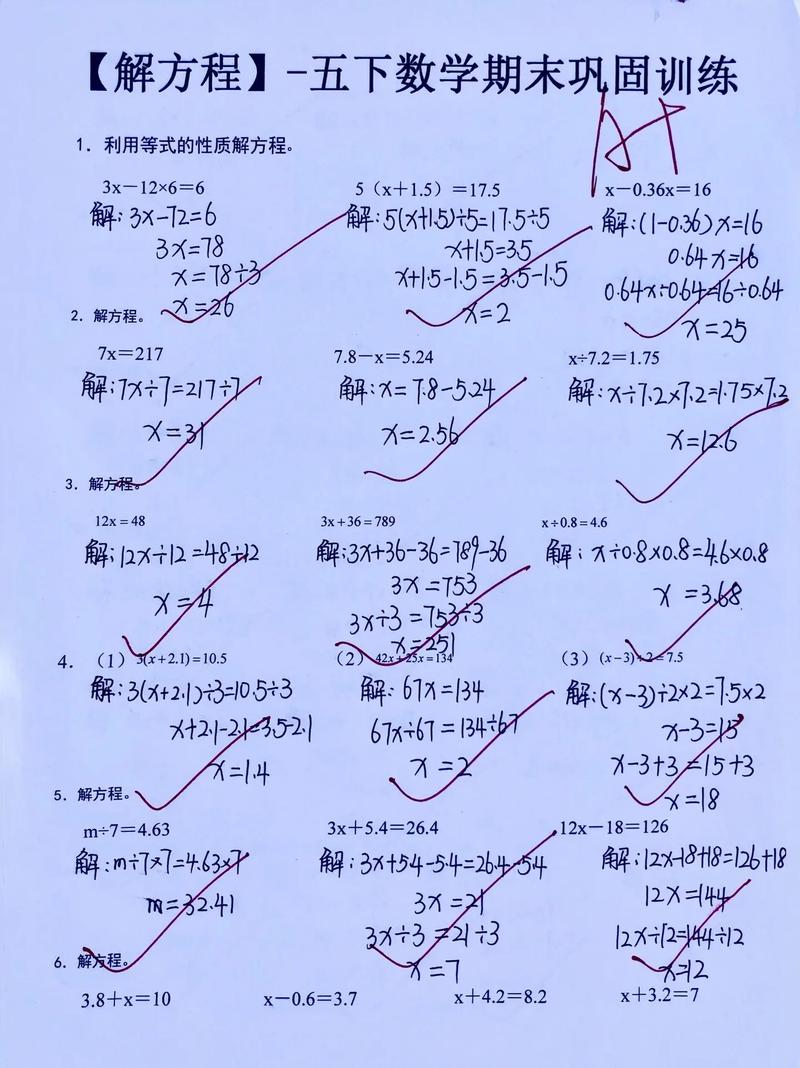 【解方程】-五下数学期末巩固训练
A+
1. 利用等式的性质解方程。
3x－12×6＝6
5（x＋1.5）＝17.5
x－0.36x＝16
解:3x-72=6
3x=78
x=78÷3
x=26
解:5(x+1.5)÷5=17.5÷5
x+1.5=3.5
x+1.5-1.5=3.5-1.5
x=2
解:(1-0.36)x=16
0.64x=16
0.64x÷0.64=16÷0.64
x=25
2. 解方程。
7x＝217
7.8－x＝5.24
x÷7.2＝1.75
解:7x÷7=217÷7
x=31
解:x=7.8-5.24
x=2.56
解:x÷7.2×7.2=1.75×7.2
x=12.6
3. 解方程。
12x＝48
3x+36＝789
x÷0.8＝4.6
解:12x÷12=48÷12
x=4
解:3x+36-36=789-36
3x=753
3x÷3=753÷3
x=251
解:x÷0.8×0.8=4.6×0.8
x=3.68
4. （1）3(x+2.1)＝10.5
（2）42x+25x＝134
（3）(x－3)÷2＝7.5
解:3(x+2.1)÷3=10.5÷3
x+2.1-2.1=3.5-2.1
x=1.4
解:67x=134
67x÷67=134÷67
x=2
解:(x-3)÷2×2=7.5×2
x-3=15
x-3+3=15+3
x=18
5. 解方程。
m÷7＝4.63
3x＋5.4＝26.4
12x－18＝126
解:m÷7×7=4.63×7
m=32.41
解:3x+5.4-5.4=26.4-5.4
3x=21
3x÷3=21÷3
x=7
解:12x-18+18=126+18
12x=144
12x÷12=144÷12
x=12
6. 解方程。
3.8＋x＝10
x－0.6＝3.7
x＋4.2＝8.2
x＋3.2＝7